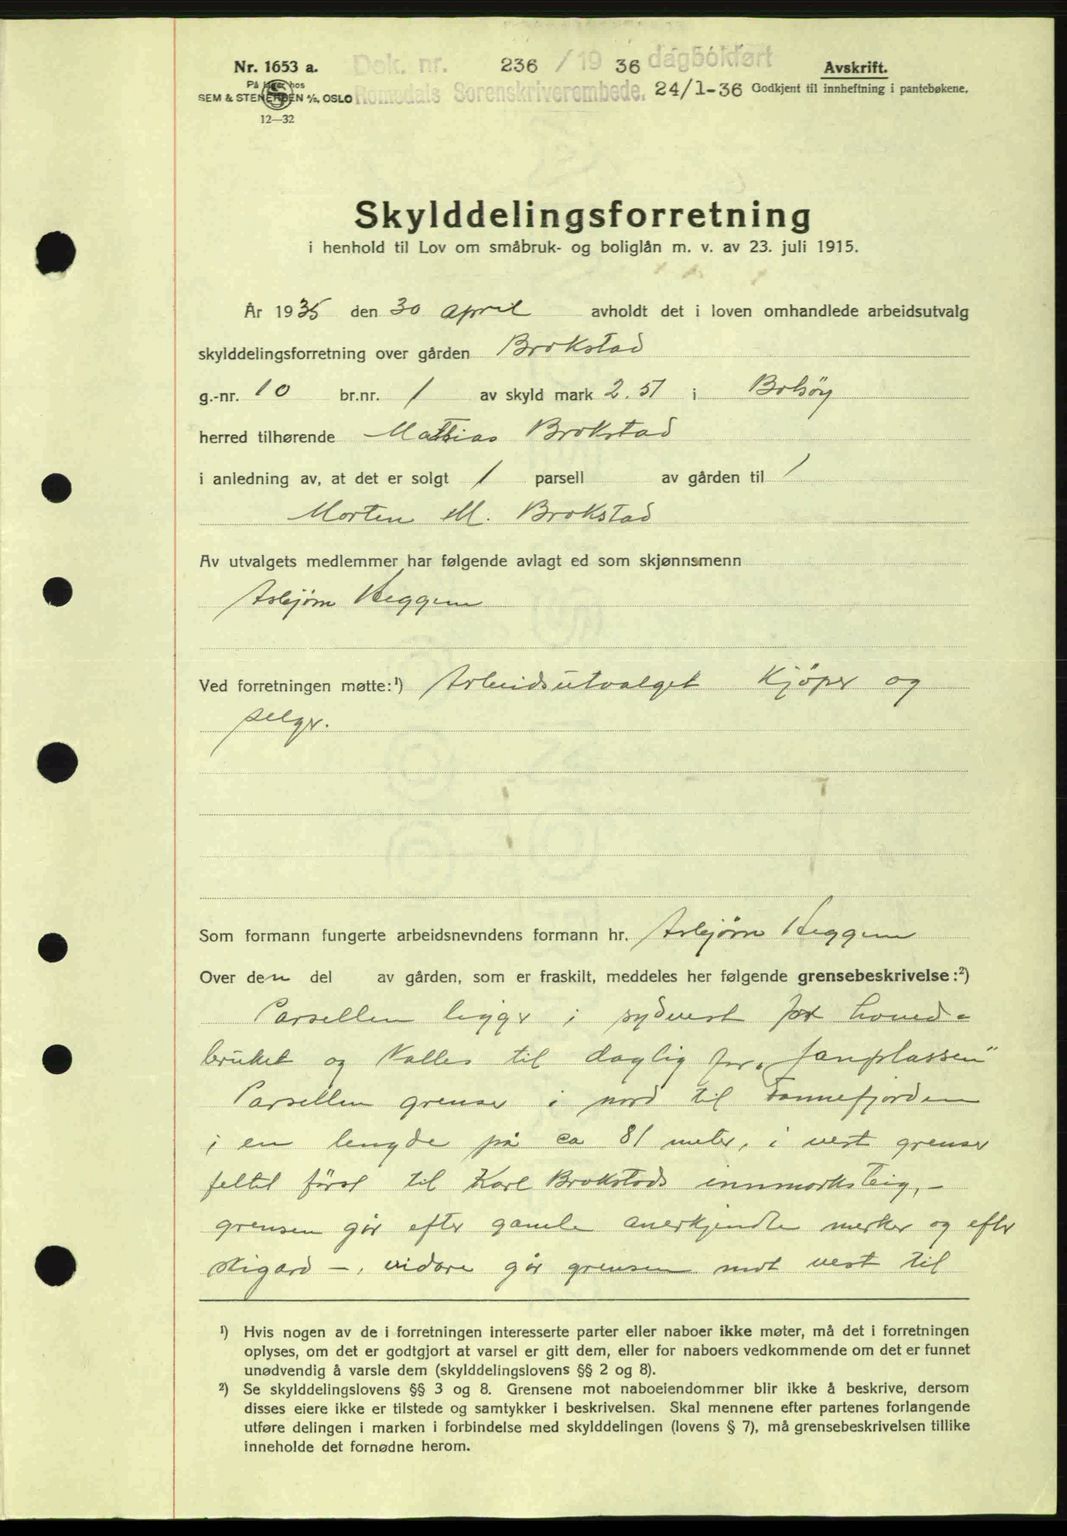 Nr. 1653 a.
På lager hos
SEM & STENERSEN A/S, OSLO
12—32
Dok. nr. 236 / 19 36 dagbokført
Romsdals Sorenskriverembede. 24/1-36
Avskrift.
Godkjent til innheftning i pantebøkene.
Skylddelingsforretning
i henhold til Lov om småbruk- og boliglån m. v. av 23. juli 1915.
År 1935 den 30 april avholdt det i loven omhandlede arbeidsutvalg
skylddelingsforretning over gården Brokstad
g.-nr. 10 br.nr. 1 av skyld mark 2.51 i Bolsöy
herred tilhørende Mathias Brokstad
i anledning av, at det er solgt 1 parsell av gården til
Morten M. Brokstad
Av utvalgets medlemmer har følgende avlagt ed som skjønnsmenn
Asbjørn Heggem
Ved forretningen møtte:¹) Arbeidsutvalget Kjöper og
selger.
Som formann fungerte arbeidsnevndens formann hr. Asbjørn Heggem
Over den del av gården, som er fraskilt, meddeles her følgende grensebeskrivelse:²)
Parsellen ligger i sydvest for hoved-
bruket og kalles til daglig for „Janplassen"
Parsellen grenser i nord til Fannefjorden
i en lengde på ca 81 meter, i vest grenser
feltet först til Karl Brokstads innmarksteig,-
grensen går efter gamle anerkjendte merker og efter
skigard -, vidare går grensen mot vest til
¹) Hvis nogen av de i forretningen interesserte parter eller naboer ikke møter, må det i forretningen
oplyses, om det er godtgjort at varsel er gitt dem, eller for naboers vedkommende om det er funnet
unødvendig å varsle dem (skylddelingslovens §§ 2 og 8).
²) Se skylddelingslovens §§ 3 og 8. Grensene mot naboeiendommer blir ikke å beskrive, dersom
disses eiere ikke er tilstede og samtykker i beskrivelsen. Skal mennene efter partenes forlangende
utføre delingen i marken i forbindelse med skylddelingen (lovens § 7), må grensebeskrivelsen tillike
inneholde det fornødne herom.